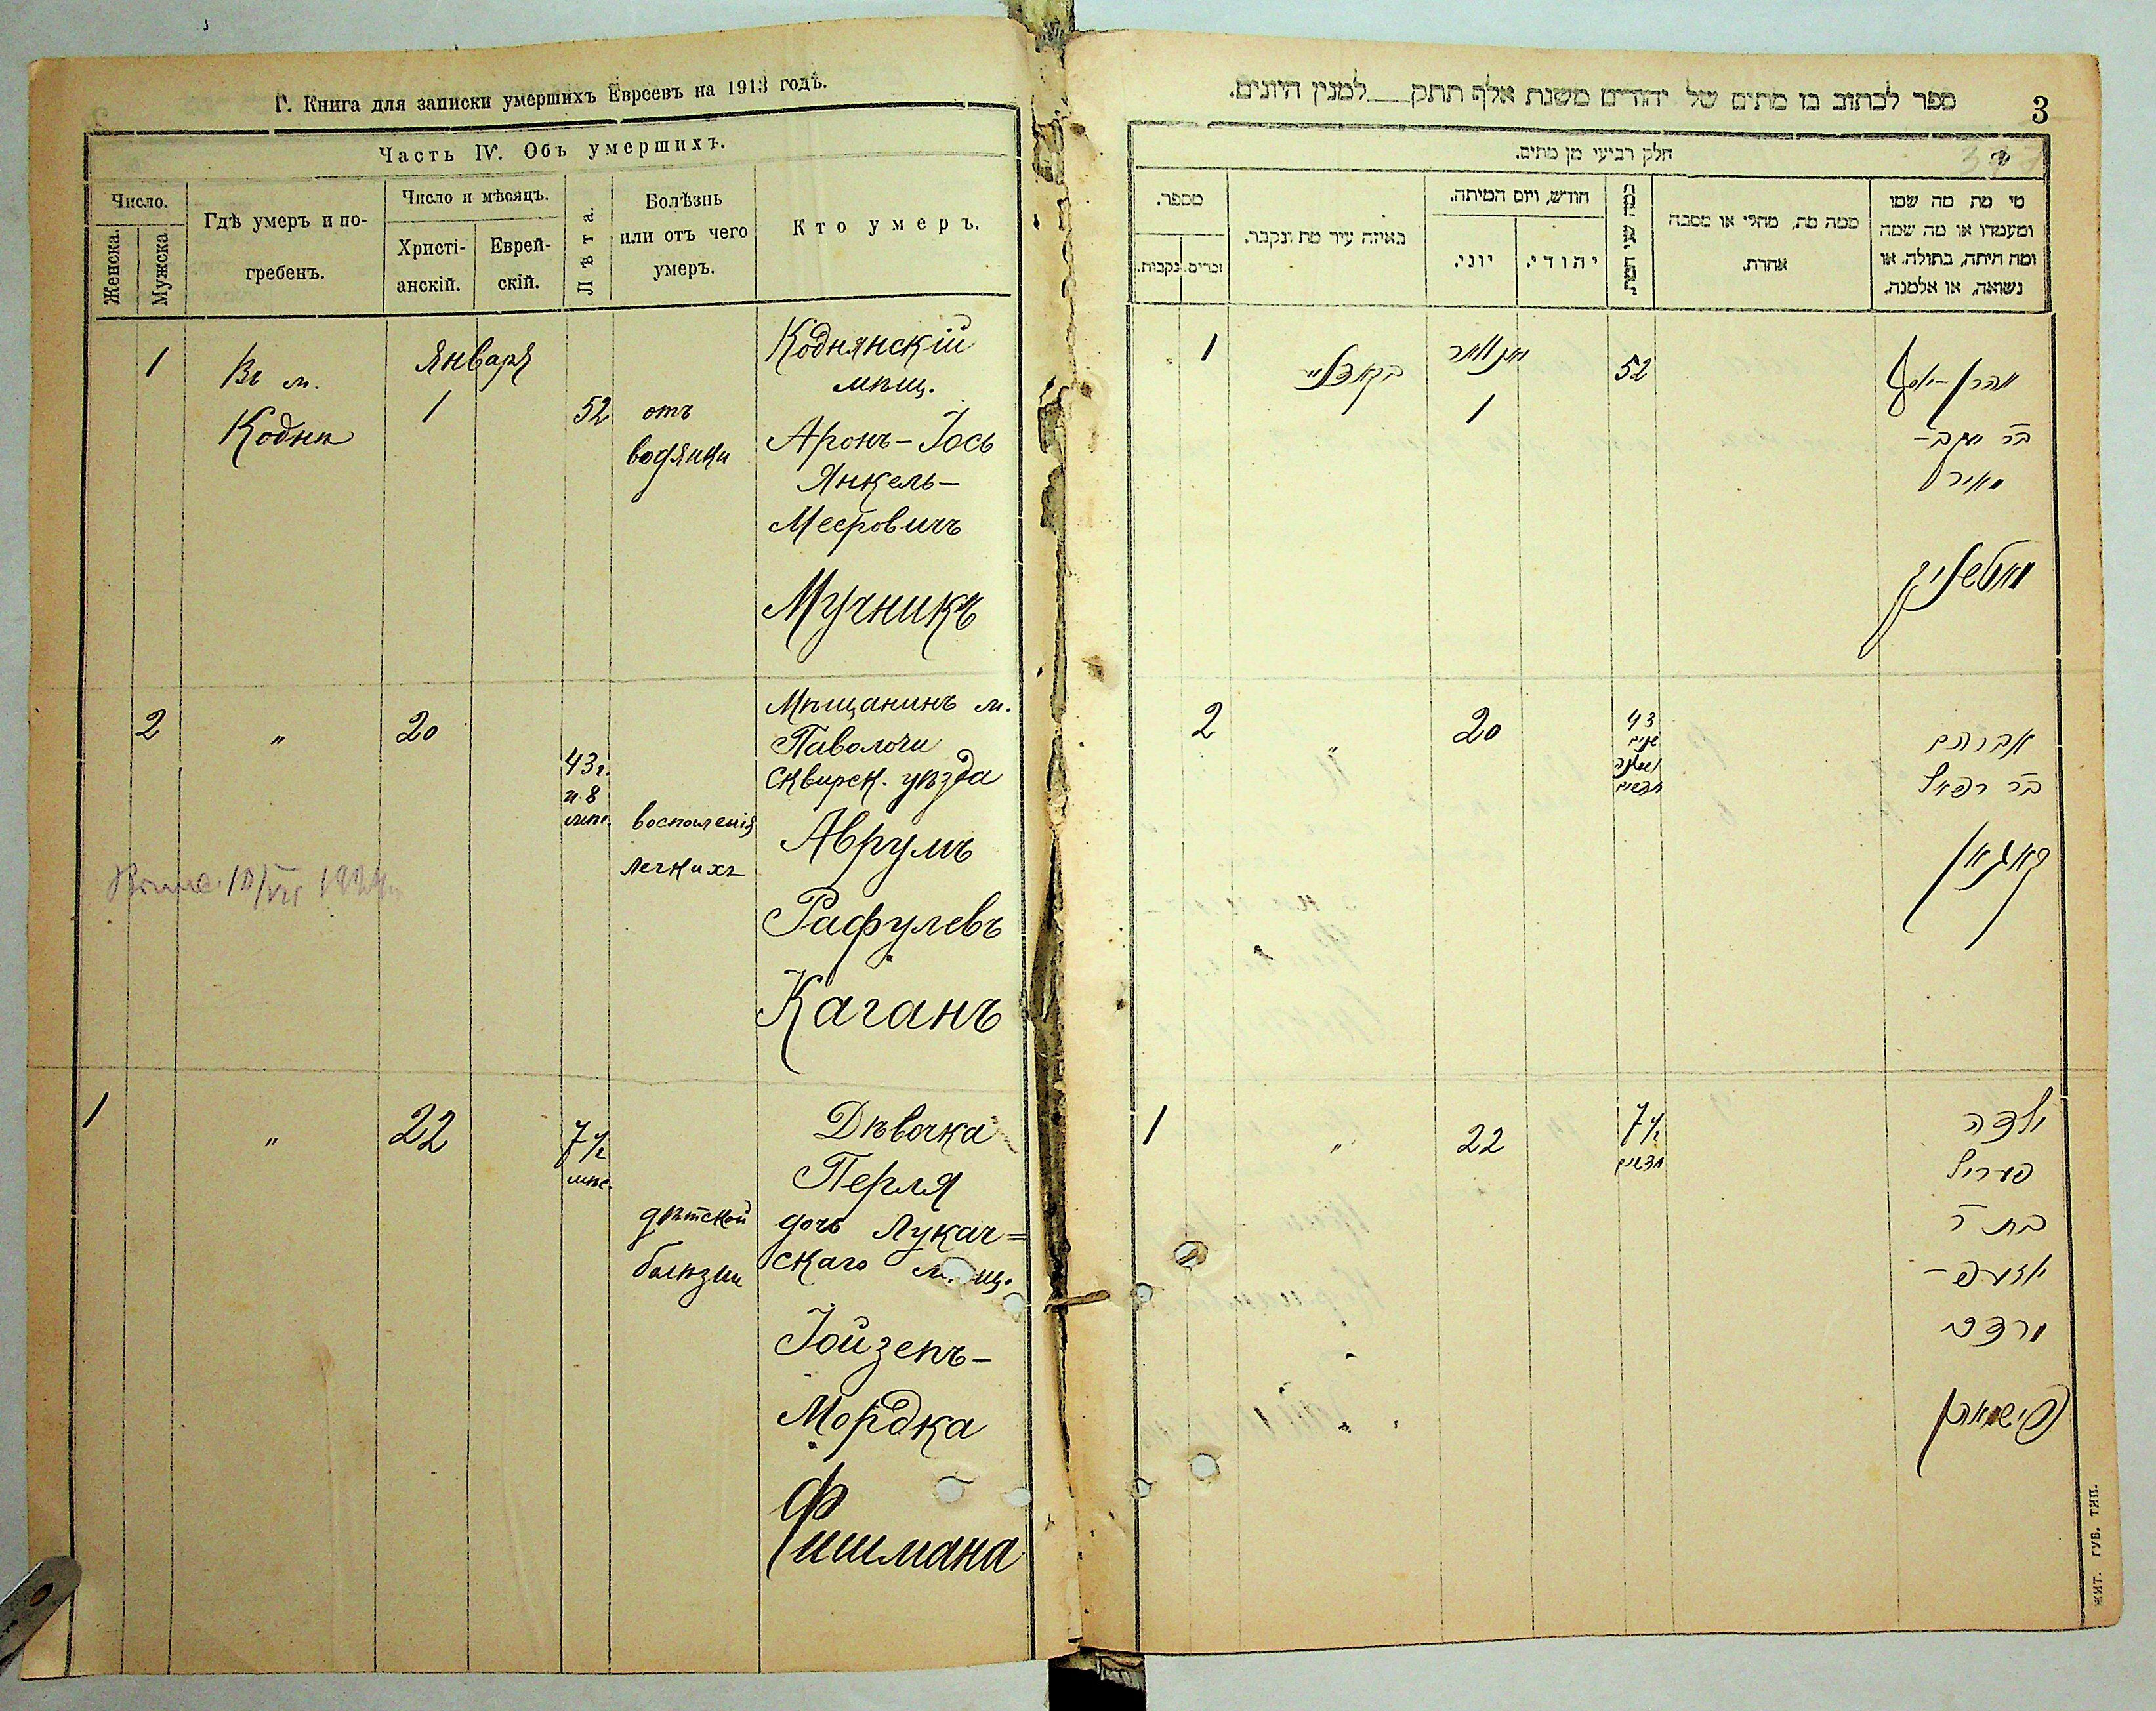 Г. Книга для записки умершихъ Евреевъ на 1913 годъ.
Часть IV. Объ умершихъ.
Число.
Женска.
Мужска.
Гдѣ умеръ и по-
гребенъ.
Число и мѣсяцъ.
Христі-
анскій.
Еврей-
скій.
Лѣта.
Болѣзнь
или отъ чего
умеръ.
Кто умеръ.
1
Въ м.
Кодня
Января
1
52
отъ
водянки
Коднянскій
мѣщ.
Аронъ-Іось
Янкель-
Мееровичъ
Мучникъ
2
"
20
43 г.
и 8
мѣс.
воспоменія
легкихъ
Мѣщанинъ м.
Паволочи
Сквирск. уѣзда
Аврумъ
Рафулевъ
Каганъ
1
"
22
7 1/2
мѣс.
дѣтской
болѣзни
Дѣвочка
Перля
дочь Лукач=
скаго
Іойзепъ-
Мордка
Фишмана
ספר לכתוב בו מתים של יהודים משנת אלף תתק למנין היונים.
3
חלק רביעי מן מתים.
מספר.
זכרים.
נקבות.
באיזה עיר מת ונקבר.
חודש, ויום המיתה.
יוני.
יהודי.
כמה שני המת
ממה מת, מחלי או מסבה
אחרת.
מי מת מה שמו
ומעמדו או מה שמה
ומה היתה, בתולה, או
נשואה, או אלמנה.
1
יאנואר
1
52
אהרן-יאס
בר יעקב-
מאיר
מוטשניק
2
"
20
43
שנים
ושמונה
חדשים
אברהם
בר רפאל
קאגאן
1
"
22
7 1/2
חדשים
ילדה
פערל
בת ר
יאזעפ-
מרדכ
פישמאן
ЖИТ. ГУБ. ТИП.